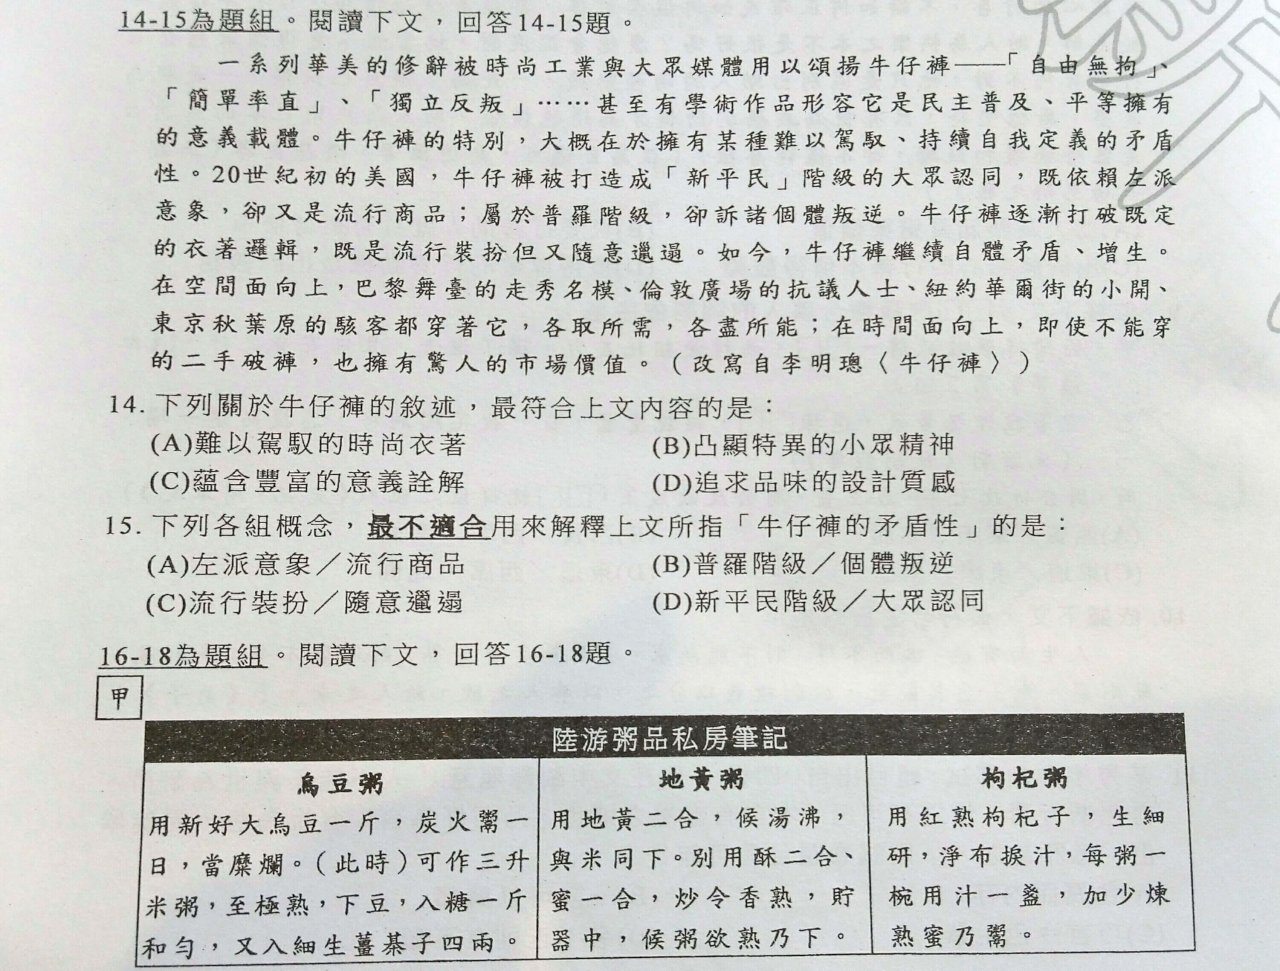 14-15為題組。閱讀下文，回答14-15題。
一系列華美的修辭被時尚工業與大眾媒體用以頌揚牛仔褲——「自由無拘」、
「簡單率直」、「獨立反叛」……甚至有學術作品形容它是民主普及、平等擁有
的意義載體。牛仔褲的特別，大概在於擁有某種難以駕馭、持續自我定義的矛盾
性。20世紀初的美國，牛仔褲被打造成「新平民」階級的大眾認同，既依賴左派
意象，卻又是流行商品；屬於普羅階級，卻訴諸個體叛逆。牛仔褲逐漸打破既定
的衣著邏輯，既是流行裝扮但又隨意邋遢。如今，牛仔褲繼續自體矛盾、增生。
在空間面向上，巴黎舞臺的走秀名模、倫敦廣場的抗議人士、紐約華爾街的小開、
東京秋葉原的駭客都穿著它，各取所需，各盡所能；在時間面向上，即使不能穿
的二手破褲，也擁有驚人的市場價值。（改寫自李明璁〈牛仔褲〉）
14. 下列關於牛仔褲的敘述，最符合上文內容的是：
(A)難以駕馭的時尚衣著 (B)凸顯特異的小眾精神
(C)蘊含豐富的意義詮解 (D)追求品味的設計質感
15. 下列各組概念，最不適合用來解釋上文所指「牛仔褲的矛盾性」的是：
(A)左派意象／流行商品 (B)普羅階級／個體叛逆
(C)流行裝扮／隨意邋遢 (D)新平民階級／大眾認同
16-18為題組。閱讀下文，回答16-18題。
甲
陸游粥品私房筆記
烏豆粥
用新好大烏豆一斤，炭火鬻一
日，當糜爛。（此時）可作三升
米粥，至極熟，下豆，入糖一斤
和勻，又入細生薑棊子四兩。
地黃粥
用地黃二合，候湯沸，
與米同下。別用酥二合、
蜜一合，炒令香熟，貯
器中，候粥欲熟乃下。
枸杞粥
用紅熟枸杞子，生細
研，淨布捩汁，每粥一
椀用汁一盞，加少煉
熟蜜乃鬻。